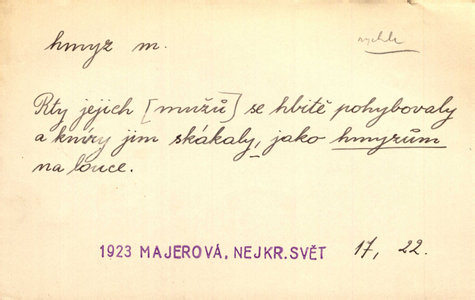 hmyz m.
rychle
Rty jejich [mužů] se hbitě pohybovaly
a kníry jim skákaly, jako hmyzům
na louce.
1923 MAJEROVÁ, NEJKR. SVĚT 17, 22.